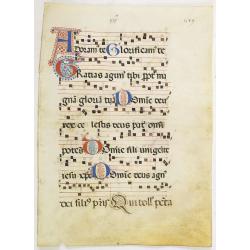 Adoram te Glorificam te
Gratias agim tibi ppt mi
gnā gloriā tuā Domine deus
rex ce lestis deus pat omps
potens Domine fili unigenite
iesu xpe Domine deus agn
dei filis pris Qui toll peccata